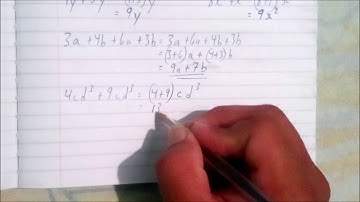 = 9y
= 9x²
3a + 4b + 6a + 3b = 3a + 6a + 4b + 3b
= (3+6)a + (4+3)b
= 9a + 7b
4cd³ + 9cd³ = (4+9)cd³
= 13